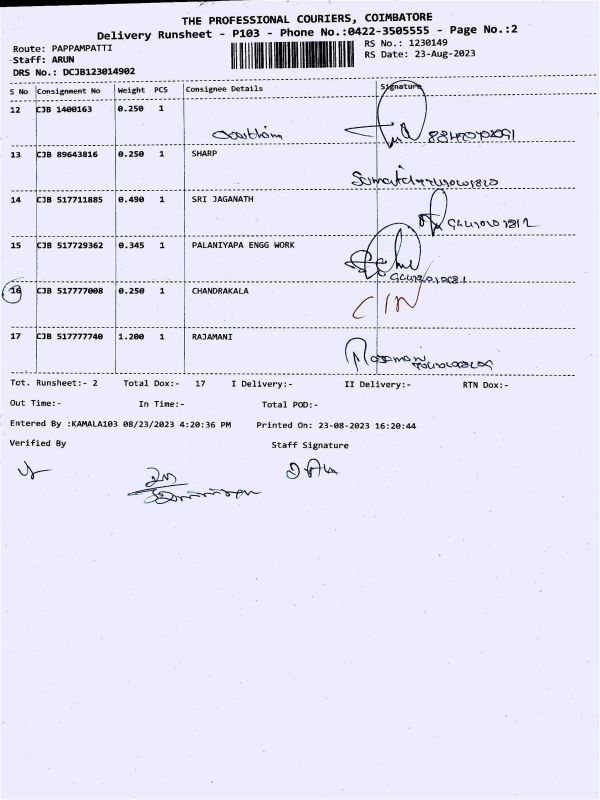 THE PROFESSIONAL COURIERS, COIMBATORE
Delivery Runsheet - P103 - Phone No.:0422-3505555 - Page No.:2
Route: PAPPAMPATTI
RS No.: 1230149
Staff: ARUN
RS Date: 23-Aug-2023
DRS No.: DCJB123014902
S No Consignment No Weight PCS Consignee Details Signature
12 CJB 1400163 0.250 1
13 CJB 89643816 0.250 1 SHARP
14 CJB 517711885 0.490 1 SRI JAGANATH
15 CJB 517729362 0.345 1 PALANIYAPA ENGG WORK
16 CJB 517777008 0.250 1 CHANDRAKALA
CIN
17 CJB 517777740 1.200 1 RAJAMANI
Tot. Runsheet:- 2 Total Dox:- 17 I Delivery:- II Delivery:- RTN Dox:-
Out Time:- In Time:- Total POD:-
Entered By :KAMALA103 08/23/2023 4:20:36 PM Printed On: 23-08-2023 16:20:44
Verified By Staff Signature